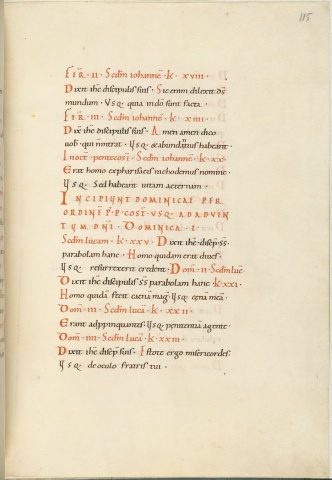 115
FER · II · Scdm iohannē · K · XVIII ·
Dixit ihc discipulis suis · Sic enim dilexit ds
mundum · Usq; quia in do sunt facta ·
FER · III · Scdm iohannē · K · XIIII ·
Dix ihc discipulis suis · Amen amen dico
uob · qui n intrat · Usq; & abundantius habeant ·
In oct · pentecost · Scdm iohannē · K · XX ·
Erat homo ex phariseis nichodemus nomine ·
Usq; Sed habeat uitam aeternam ·
INCIPIUNT DOMINICAE PER
ORDINE P · P · COST · USQ · AD ADUEN
TUM DNI · DOMINICA · I ·
Scdm lucam · K · XXV · Dixit ihc discip ss
parabolam hanc · Homo quidam erat diues ·
Usq; resurrexerit credent · Dom · II · Scdm luc
Dixit ihc discipulis ss parabolam hanc · K · XXI ·
Homo quidā fecit cenā mag · Usq; cenā meā ·
Dom · III · Scdm lucā · K · XXII ·
Erant adppinquantes · Usq; penitentiā agente ·
Dom · IIII · Scdm lucā · K · XXIII ·
Dixit ihc discip suis · Estote ergo misericordes ·
Usq; de oculo fratris tui ·